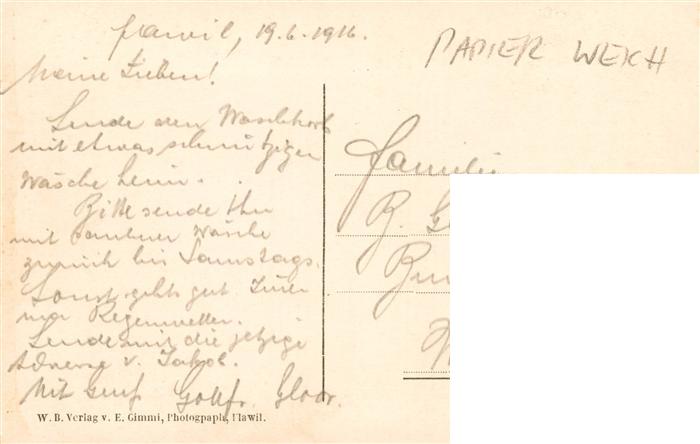 Flawil, 19.6.1916.
PAPIER WEICH
Meine Lieben!
Sende den Waschkorb
mit etwas schmutziger
Wäsche heim.
Bitte sende Ihn
mit sauberer Wäsche
zurück bis Samstags.
Sonst gehts gut. Immer
nur Regenwetter.
Sende mir die jetzige
Adresse v. Jakob.
Mit Gruss Gottfr. Gloor.
Familie
R. Gl
W. B. Verlag v. E. Gimmi, Photograph, Flawil.